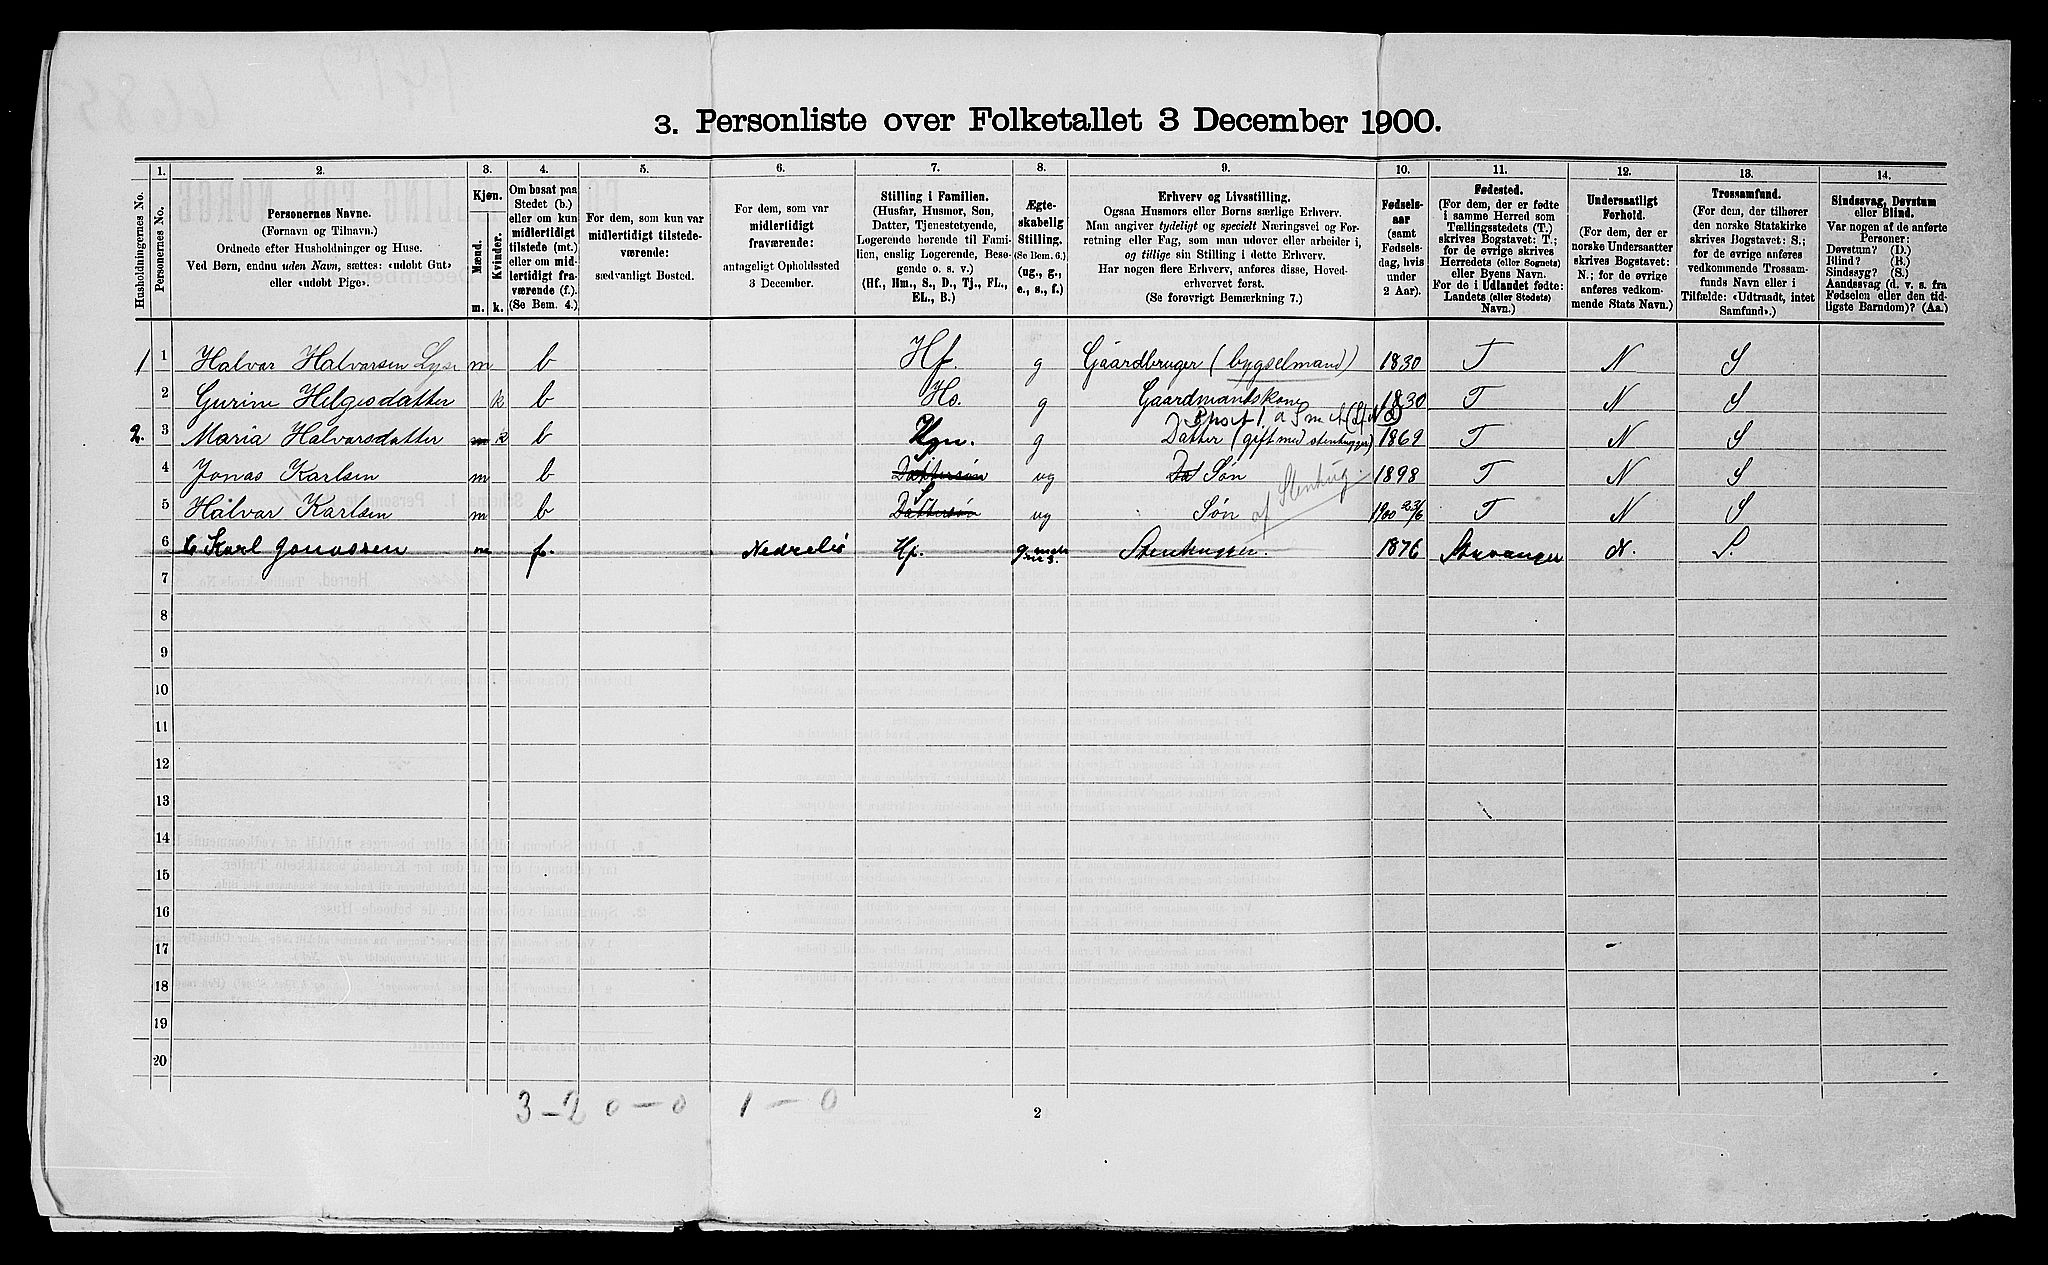 3. Personliste over Folketallet 3 December 1900.
1. 2. 3. 4. 5. 6. 7. 8. 9. 10. 11. 12. 13. 14.
Husholdningernes No.
Personernes No.
Personernes Navne.
(Fornavn og Tilnavn.)
Ordnede efter Husholdninger og Huse.
Ved Børn, endnu uden Navn, sættes: «udøbt Gut»
eller «udøbt Pige».
Kjøn.
Mænd.
Kvinder.
m. k.
Om bosat paa
Stedet (b.)
eller om kun
midlertidigt
tilstede (mt.)
eller om mid-
lertidigt fra-
værende (f.)
(Se Bem. 4.)
For dem, som kun var
midlertidigt tilstede-
værende:
sædvanligt Bosted.
For dem, som var
midlertidigt
fraværende:
antageligt Opholdssted
3 December.
Stilling i Familien.
(Husfar, Husmor, Søn,
Datter, Tjenestetyende,
Logerende hørende til Fami-
lien, enslig Logerende, Besø-
gende o. s. v.)
(Hf., Hm., S., D., Tj., FL.,
EL., B.)
Ægte-
skabelig
Stilling.
(Se Bem. 6.)
(ug., g.,
e., s., f.)
Erhverv og Livsstilling.
Ogsaa Husmors eller Børns særlige Erhverv.
Man angiver tydeligt og specielt Næringsvei og For-
retning eller Fag, som man udøver eller arbeider i,
og tillige sin Stilling i dette Erhverv.
Har nogen flere Erhverv, anføres disse, Hoved-
erhvervet først.
(Se forøvrigt Bemærkning 7.)
Fødsels-
aar
(samt
Fødsels-
dag, hvis
under
2 Aar).
Fødested.
(For dem, der er fødte
i samme Herred som
Tællingsstedets (T.)
skrives Bogstavet: T.;
for de øvrige skrives
Herredets (eller Sognets)
eller Byens Navn.
For de i Udlandet fødte:
Landets (eller Stedets)
Navn.)
Undersaatligt
Forhold.
(For dem, der er
norske Undersaatter
skrives Bogstavet:
N.; for de øvrige
anføres vedkom-
mende Stats Navn.)
Trossamfund.
(For dem, der tilhører
den norske Statskirke
skrives Bogstavet: S.;
for de øvrige anføres
vedkommende Trossam-
funds Navn eller i
Tilfælde: «Udtraadt, intet
Samfund».)
Sindssvag, Døvstum
eller Blind.
Var nogen af de anførte
Personer:
Døvstum? (D.)
Blind? (B.)
Sindssyg? (S.)
Aandssvag (d. v. s. fra
Fødselen eller den tid-
ligste Barndom)? (Aa.)
1 1 Halvar Halvarsen Lyse m b Hf. g Gaardbruger (bygselmand) 1830 T N S
2 Gurine Helgesdatter k b Hs. g Gaardmandskone 1830 T N S
2. 3 Maria Halvarsdatter m k b g Datter (gift med stenhugger) 1869 T N S
S
4 Jonas Karlsen m b Dattersøn ug Søn 1898 T N S
S af Stenhug
5 Halvar Karlsen m b Dattersøn ug Søn 1900 23/6 T N S
6 Karl Jonassen m f. Nedrelis Hf. g. Stenhugger. 1876 Stavanger N. S.
7
8
9
10
11
12
13
14
15
16
17
18
19
20
3 – 2 0 – 0 1 – 0
2